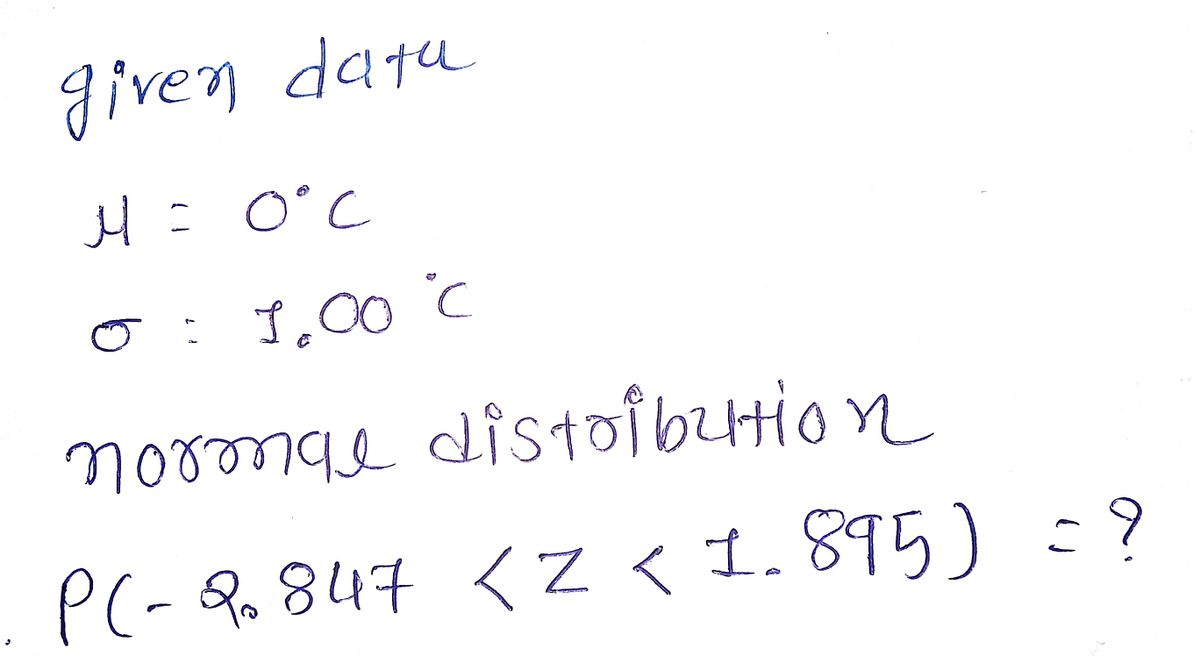 given data
μ = 0°C
σ = 1.00 °C
normal distribution
P(-2.847 < Z < 1.895) = ?